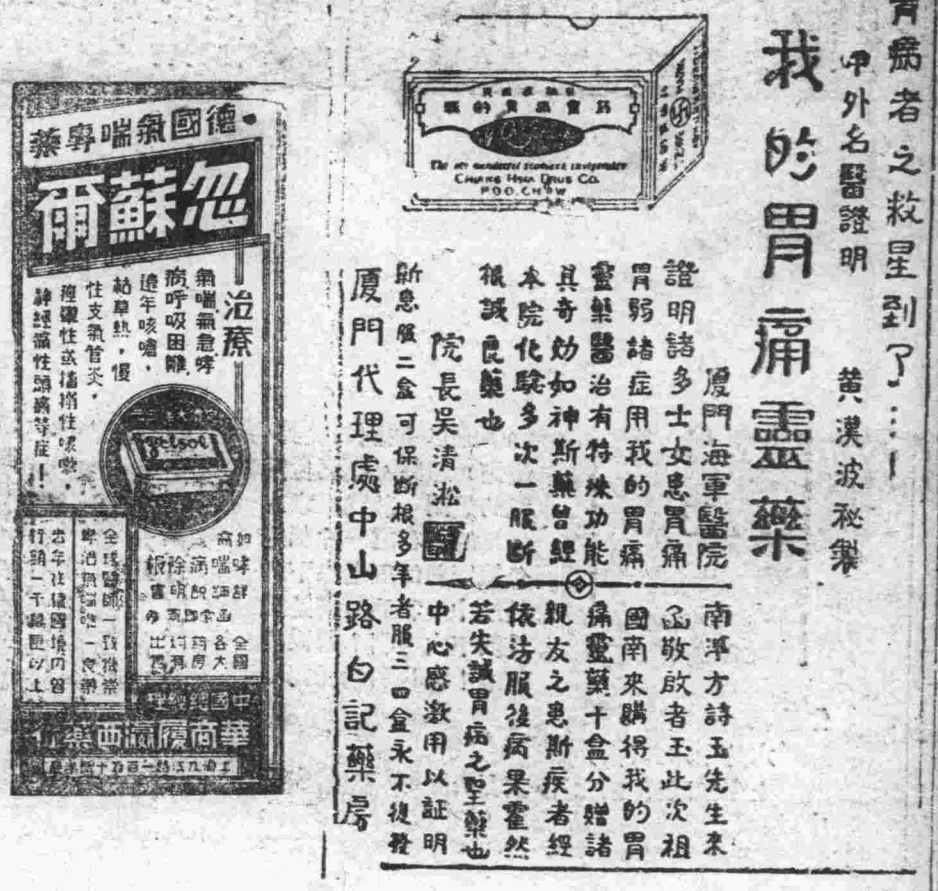 胃病者之救星到了……！
中外名醫證明
黃漢波秘製
我的胃痛靈藥
The
Stomach Invigorator
CHIANG HSIA DRUG CO.
FOO.CHOW
廈門海軍醫院
證明諸多士女患胃痛
胃弱諸症用我的胃痛
靈藥醫治有特殊功能
具奇効如神斯藥曾經
本院化驗多次一服斷
根誠良藥也
院長吳清淞
南洋方詩玉先生來
函敬啟者玉此次祖
國南來購得我的胃
痛靈藥十盒分贈諸
親友之患斯疾者經
依法服後病果霍然
若失誠胃病之聖藥也
中心感激用以証明
新患服二盒可保斷根多年者服三四盒永不復發
廈門代理處中山路白記藥房
德國氣喘專藥
忽蘇爾
治療
氣喘氣急哮
病呼吸困難
遠年咳嗆，
枯草熱，慢
性支氣管炎，
痙攣性或搐搦性咳嗽，
神經痛性頭痛等症！
全國
各大
药房
均有
出售
全球醫師一致推崇
專治氣喘唯一良藥
去年在德國境內省
行銷一千萬匣以上
中國總經理
華商履瀛西藥行